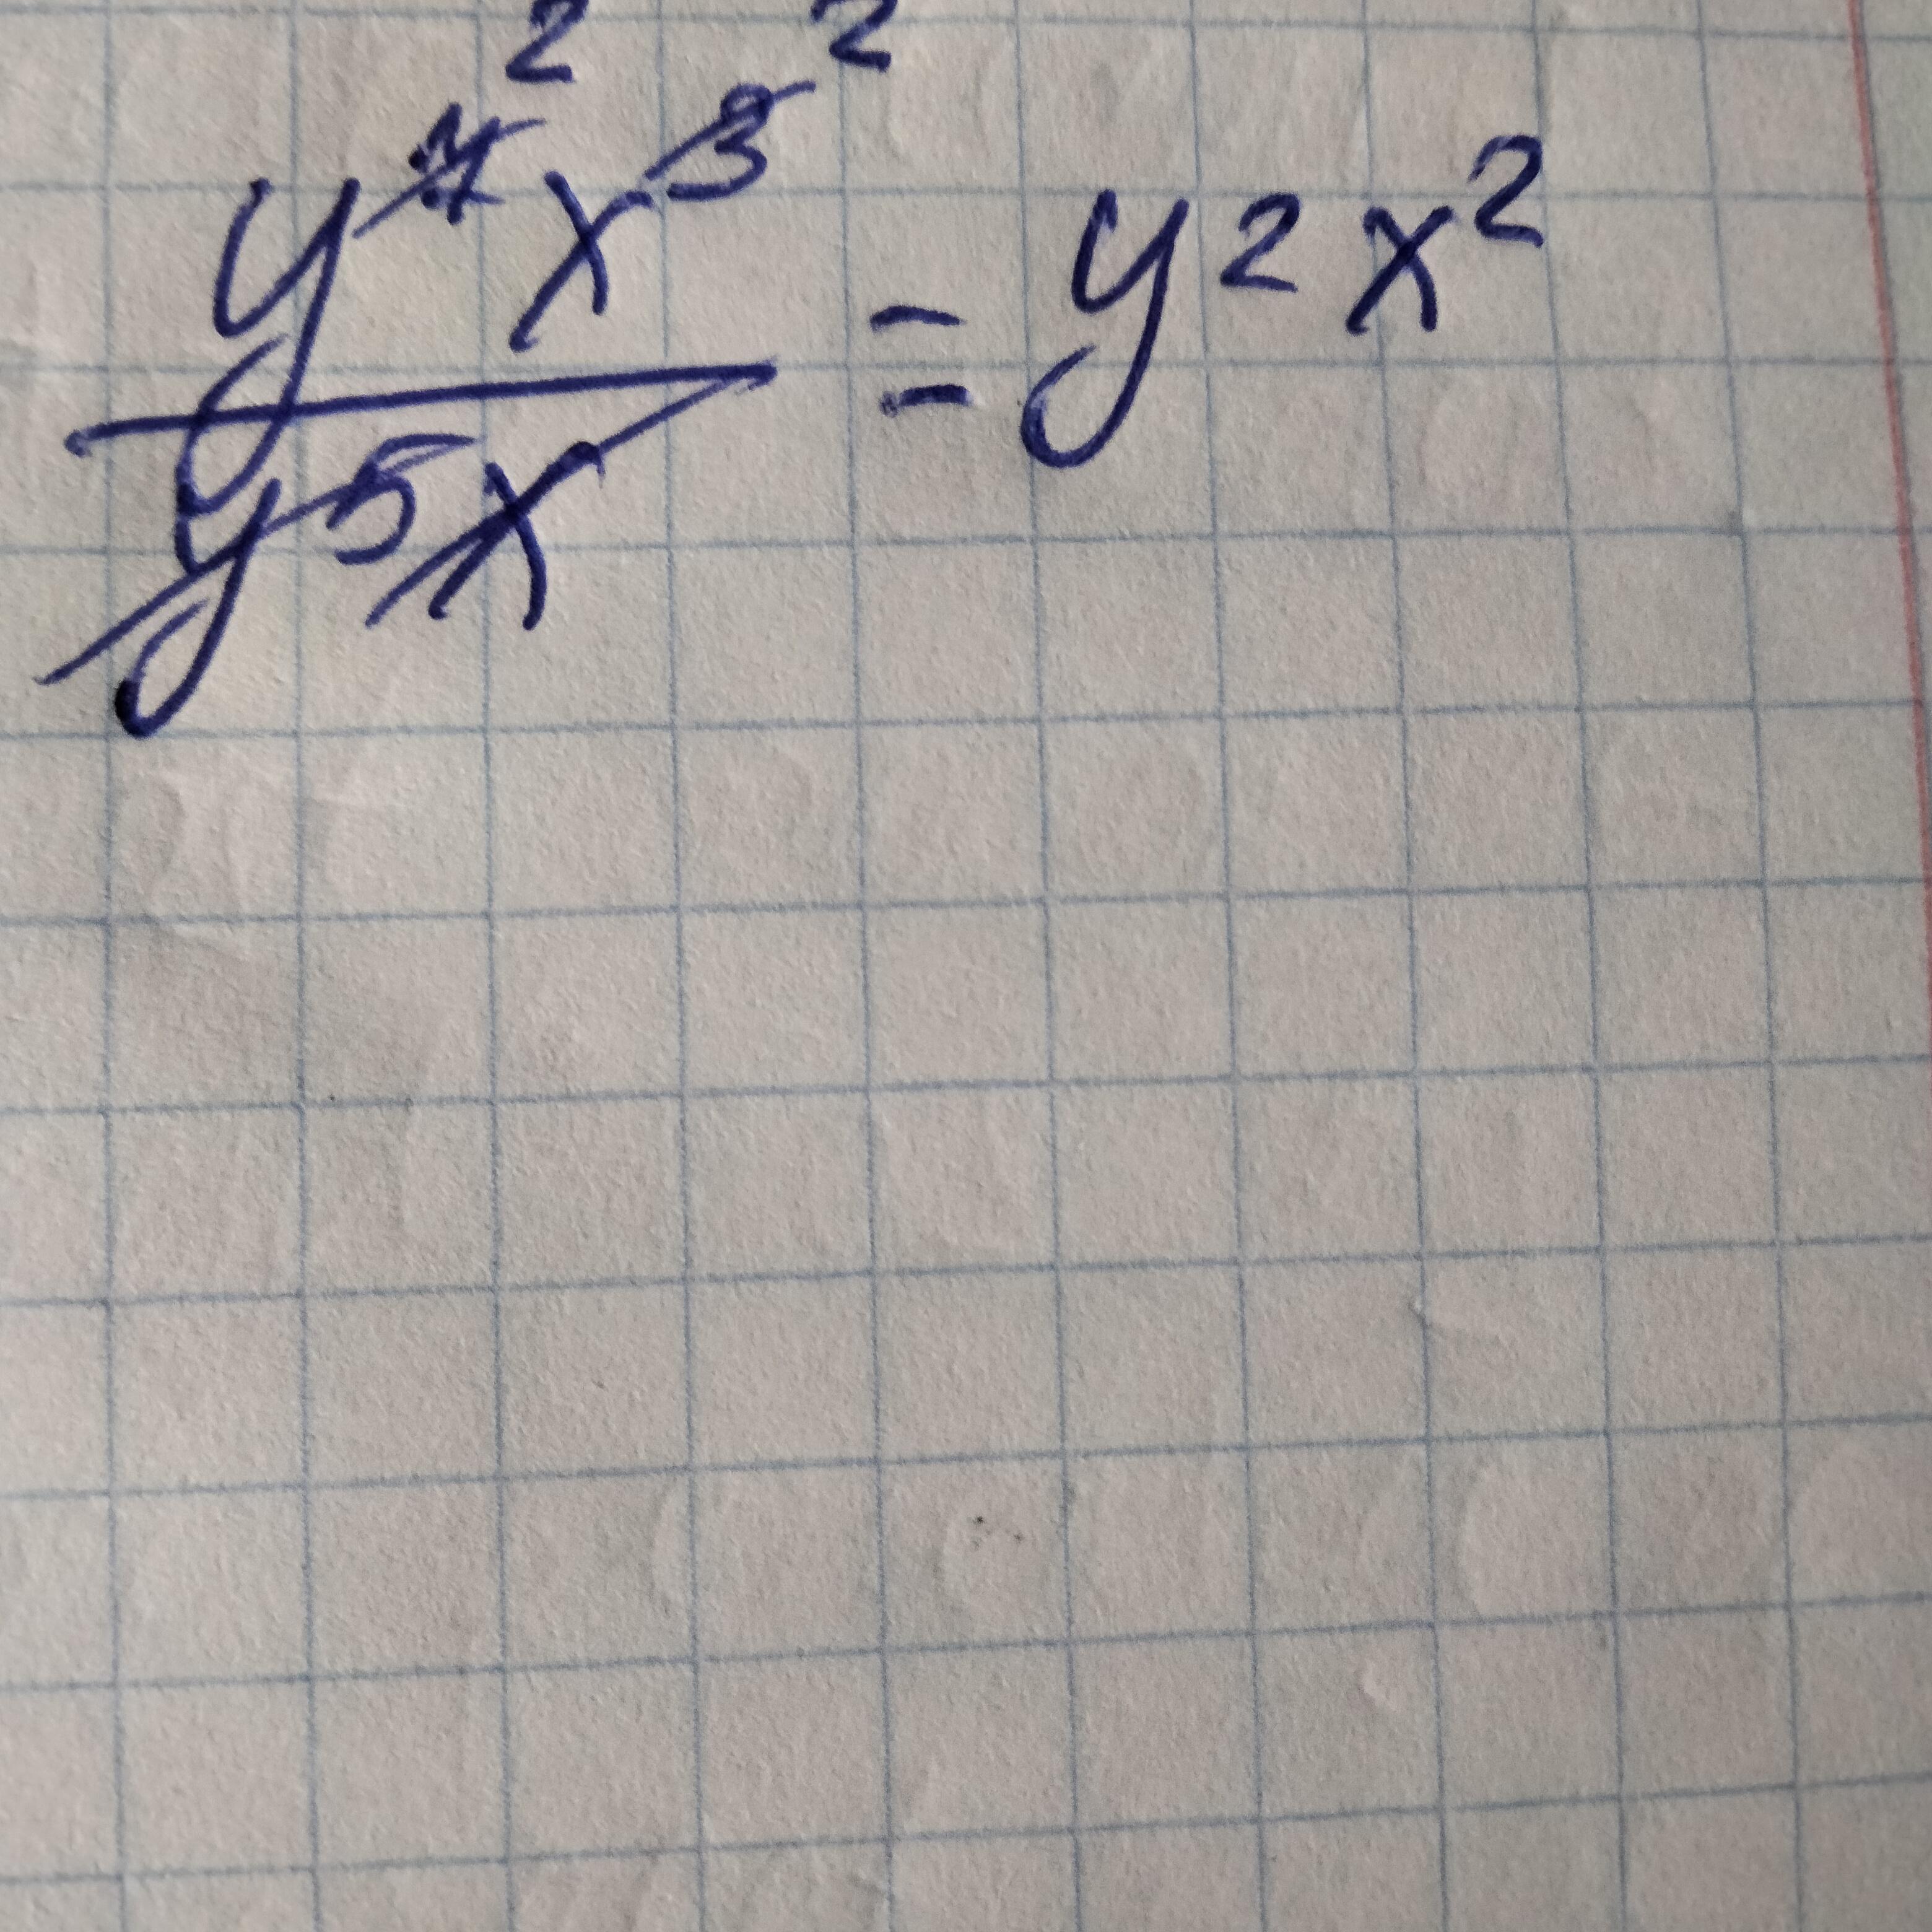 2 2
y⁷x³
y⁵x
= y²x²